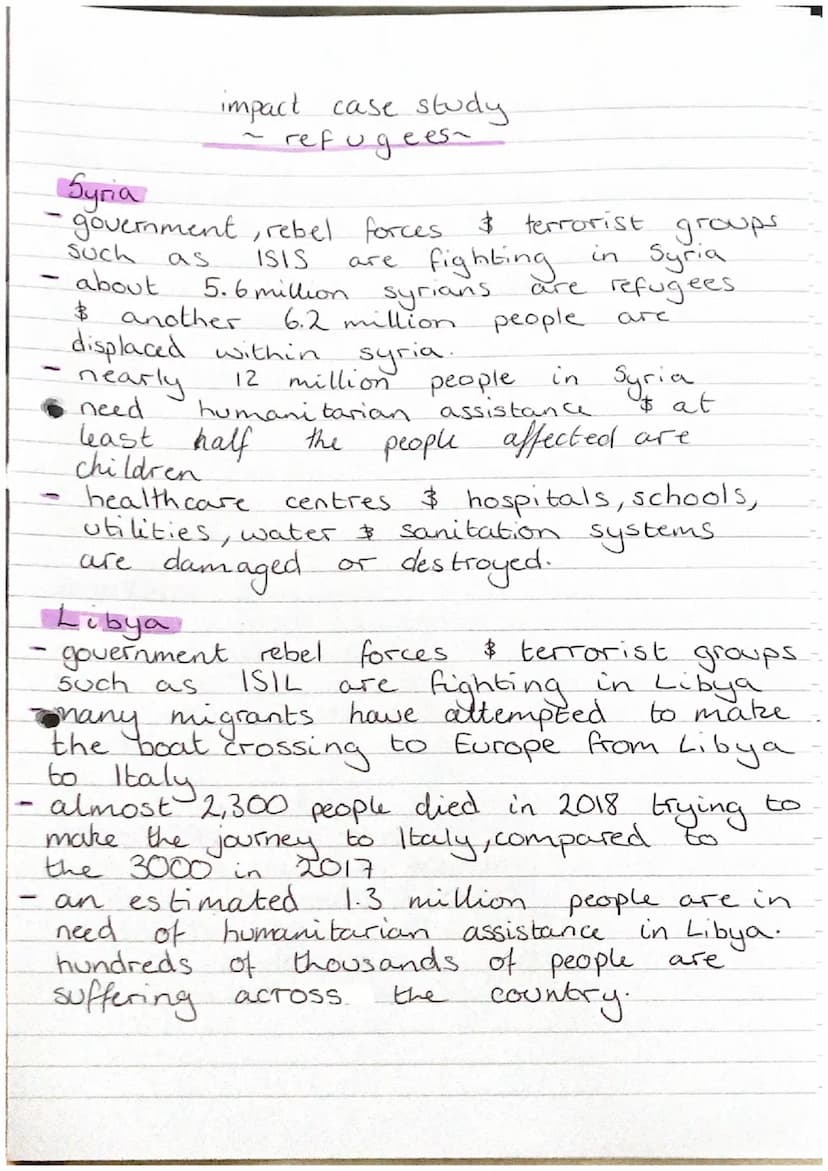 impact case study
~ refugees~
Syria
- government, rebel forces & terrorist groups
such as ISIS are fighting in Syria
- about 5.6 million syrians are refugees
& another 6.2 million people are
displaced within syria.
- nearly 12 million people in Syria
need humanitarian assistance & at
least half the people affected are
children
- healthcare centres & hospitals, schools,
utilities, water & sanitation systems
are damaged or destroyed.
Libya
- government rebel forces & terrorist groups
such as ISIL are fighting in Libya
- many migrants have attempted to make
the boat crossing to Europe from Libya
to Italy
- almost 2,300 people died in 2018 trying to
make the journey to Italy, compared to
the 3000 in 2017
- an estimated 1.3 million people are in
need of humanitarian assistance in Libya.
hundreds of thousands of people are
suffering across the country.